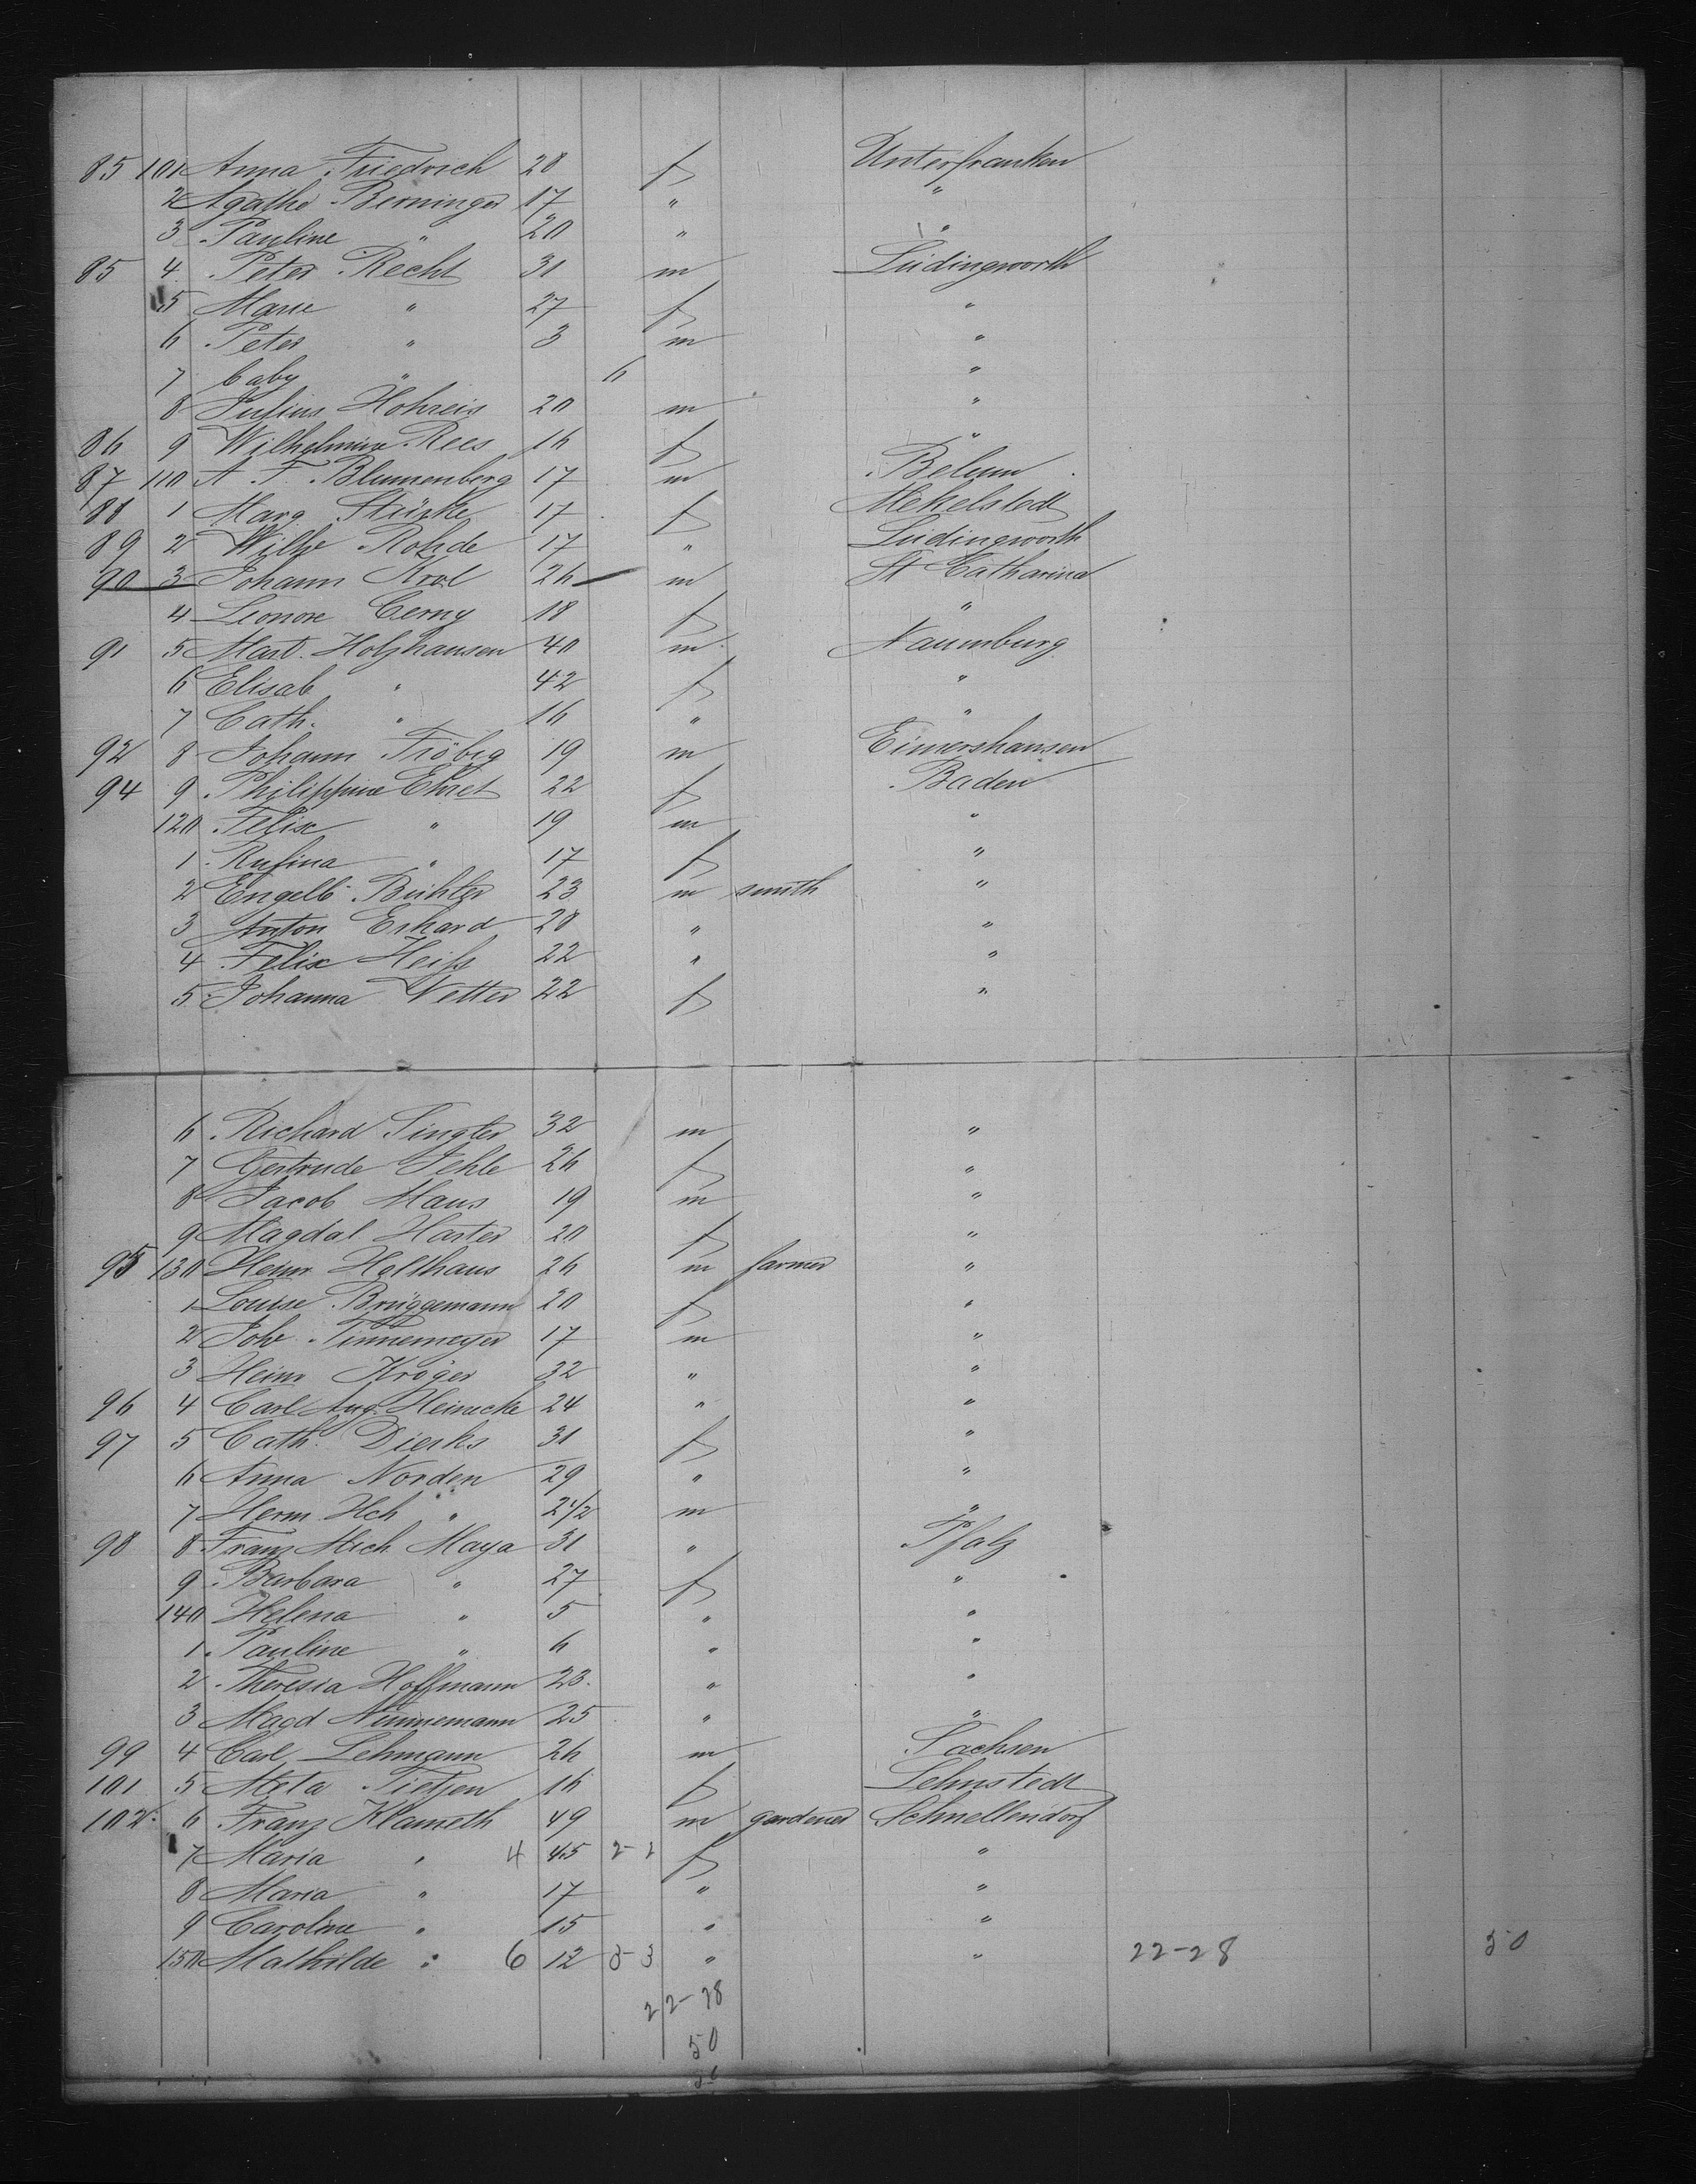 85 101 Anna Friedrich 28 f Unterfranken
2 Agathe Berninger 17 " "
3 Pauline " 20 " "
85 4 Peter Recht 31 m Lüdingworth
5 Marie " 27 f "
6 Peter " 3 m "
7 baby " 6 "
8 Julius Hohreis 20 m "
86 9 Wilhelmine Rees 16 f "
87 110 A F. Blumenberg 17 m Belum
88 1 Marg. Stürke 17 f Mekelstedt
89 2 Wilhe Rohde 17 " Lüdingworth
90 3 Johann Kral 26 m St Catharina
4 Leonore Cerny 18 f "
91 5 Mart. Holzhausen 40 m Naumburg
6 Elisab " 42 f "
7 Cath. " 16 " "
92 8 Johann Fröbig 19 m Eimershausen
94 9 Philippine Ehret 22 f Baden
120 Felix " 19 m "
1 Rufina " 17 f "
2 Engelb. Bühler 23 m smith "
3 Anton Erhard 28 " "
4 Felix Heiß 22 " "
5 Johanna Vetter 22 f "
6 Richard Singler 32 m "
7 Gertrude Jehle 26 f "
8 Jacob Maus 19 m "
9 Magdal Harter 20 f "
95 130 Heinr Holthaus 26 m farmer "
1 Louise Brüggemann 20 f "
2 Joh Tinnemeyer 17 m "
3 Heinr Kröger 32 " "
96 4 Carl Aug. Heinecke 24 " "
97 5 Cath. Dierks 31 f "
6 Anna Norden 29 " "
7 Herm Hch " 2 1/2 m "
98 8 Franz Mich Maya 31 " Pfalz
9 Barbara " 27 f "
140 Helena " 5 " "
1 Pauline " 6 " "
2 Theresia Hoffmann 23. " "
3 Magd Nünnemann 25 " "
99 4 Carl Lehmann 26 m Sachsen
101 5 Meta Tietjen 16 f Lehnstedt
102 6 Franz Klameth 49 m gardener Schnellendorf
7 Maria " 4 45 2-2 f "
8 Maria " 17 " "
9 Caroline " 15 " "
150 Mathilde " 6 12 3-3 " " 22-28 50
22-28
50